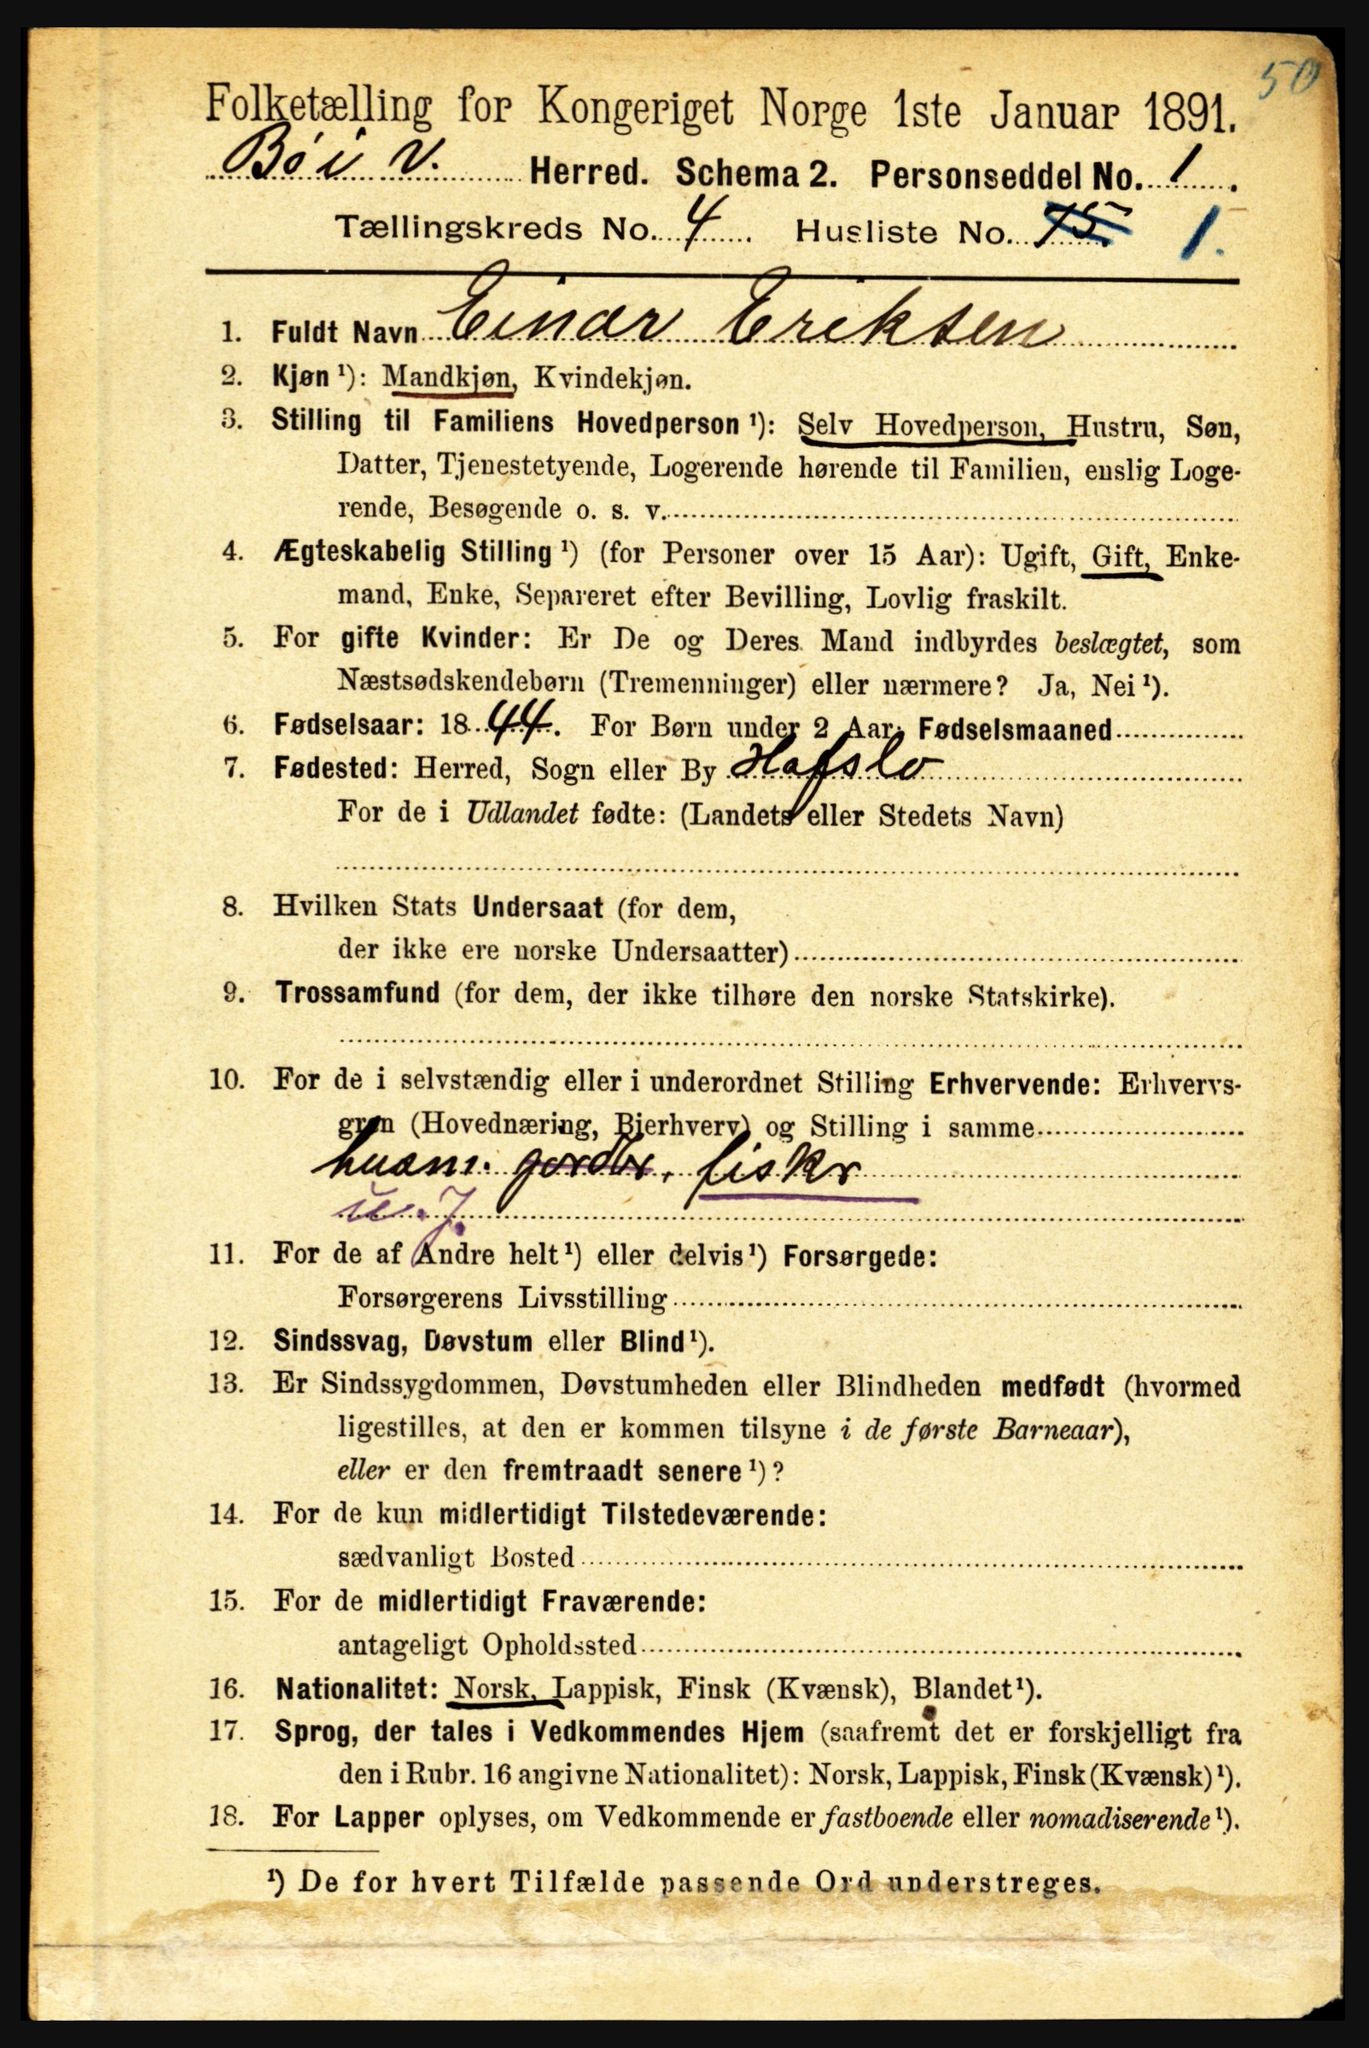 50
Folketælling for Kongeriget Norge 1ste Januar 1891.
Bø i V. Herred. Schema 2. Personseddel No. 1.
Tællingskreds No. 4 Husliste No. 75. 1.
1. Fuldt Navn Einar Eriksen
2. Kjøn ¹): Mandkjøn, Kvindekjøn.
3. Stilling til Familiens Hovedperson ¹): Selv Hovedperson, Hustru, Søn,
Datter, Tjenestetyende, Logerende hørende til Familien, enslig Loge-
rende, Besøgende o. s. v.
4. Ægteskabelig Stilling ¹) (for Personer over 15 Aar): Ugift, Gift, Enke-
mand, Enke, Separeret efter Bevilling, Lovlig fraskilt.
5. For gifte Kvinder: Er De og Deres Mand indbyrdes beslægtet, som
Næstsødskendebørn (Tremenninger) eller nærmere? Ja, Nei ¹).
6. Fødselsaar: 1844. For Børn under 2 Aar: Fødselsmaaned
7. Fødested: Herred, Sogn eller By Hafslo
For de i Udlandet fødte: (Landets eller Stedets Navn)
8. Hvilken Stats Undersaat (for dem,
der ikke ere norske Undersaatter)
9. Trossamfund (for dem, der ikke tilhøre den norske Statskirke).
10. For de i selvstændig eller i underordnet Stilling Erhvervende: Erhvervs-
gren (Hovednæring, Bierhverv) og Stilling i samme
husm. fiskr
u. J.
11. For de af Andre helt ¹) eller delvis ¹) Forsørgede:
Forsørgerens Livsstilling
12. Sindssvag, Døvstum eller Blind ¹).
13. Er Sindssygdommen, Døvstumheden eller Blindheden medfødt (hvormed
ligestilles, at den er kommen tilsyne i de første Barneaar),
eller er den fremtraadt senere ¹)?
14. For de kun midlertidigt Tilstedeværende:
sædvanligt Bosted
15. For de midlertidigt Fraværende:
antageligt Opholdssted
16. Nationalitet: Norsk, Lappisk, Finsk (Kvænsk), Blandet ¹).
17. Sprog, der tales i Vedkommendes Hjem (saafremt det er forskjelligt fra
den i Rubr. 16 angivne Nationalitet): Norsk, Lappisk, Finsk (Kvænsk) ¹).
18. For Lapper oplyses, om Vedkommende er fastboende eller nomadiserende ¹).
¹) De for hvert Tilfælde passende Ord understreges.